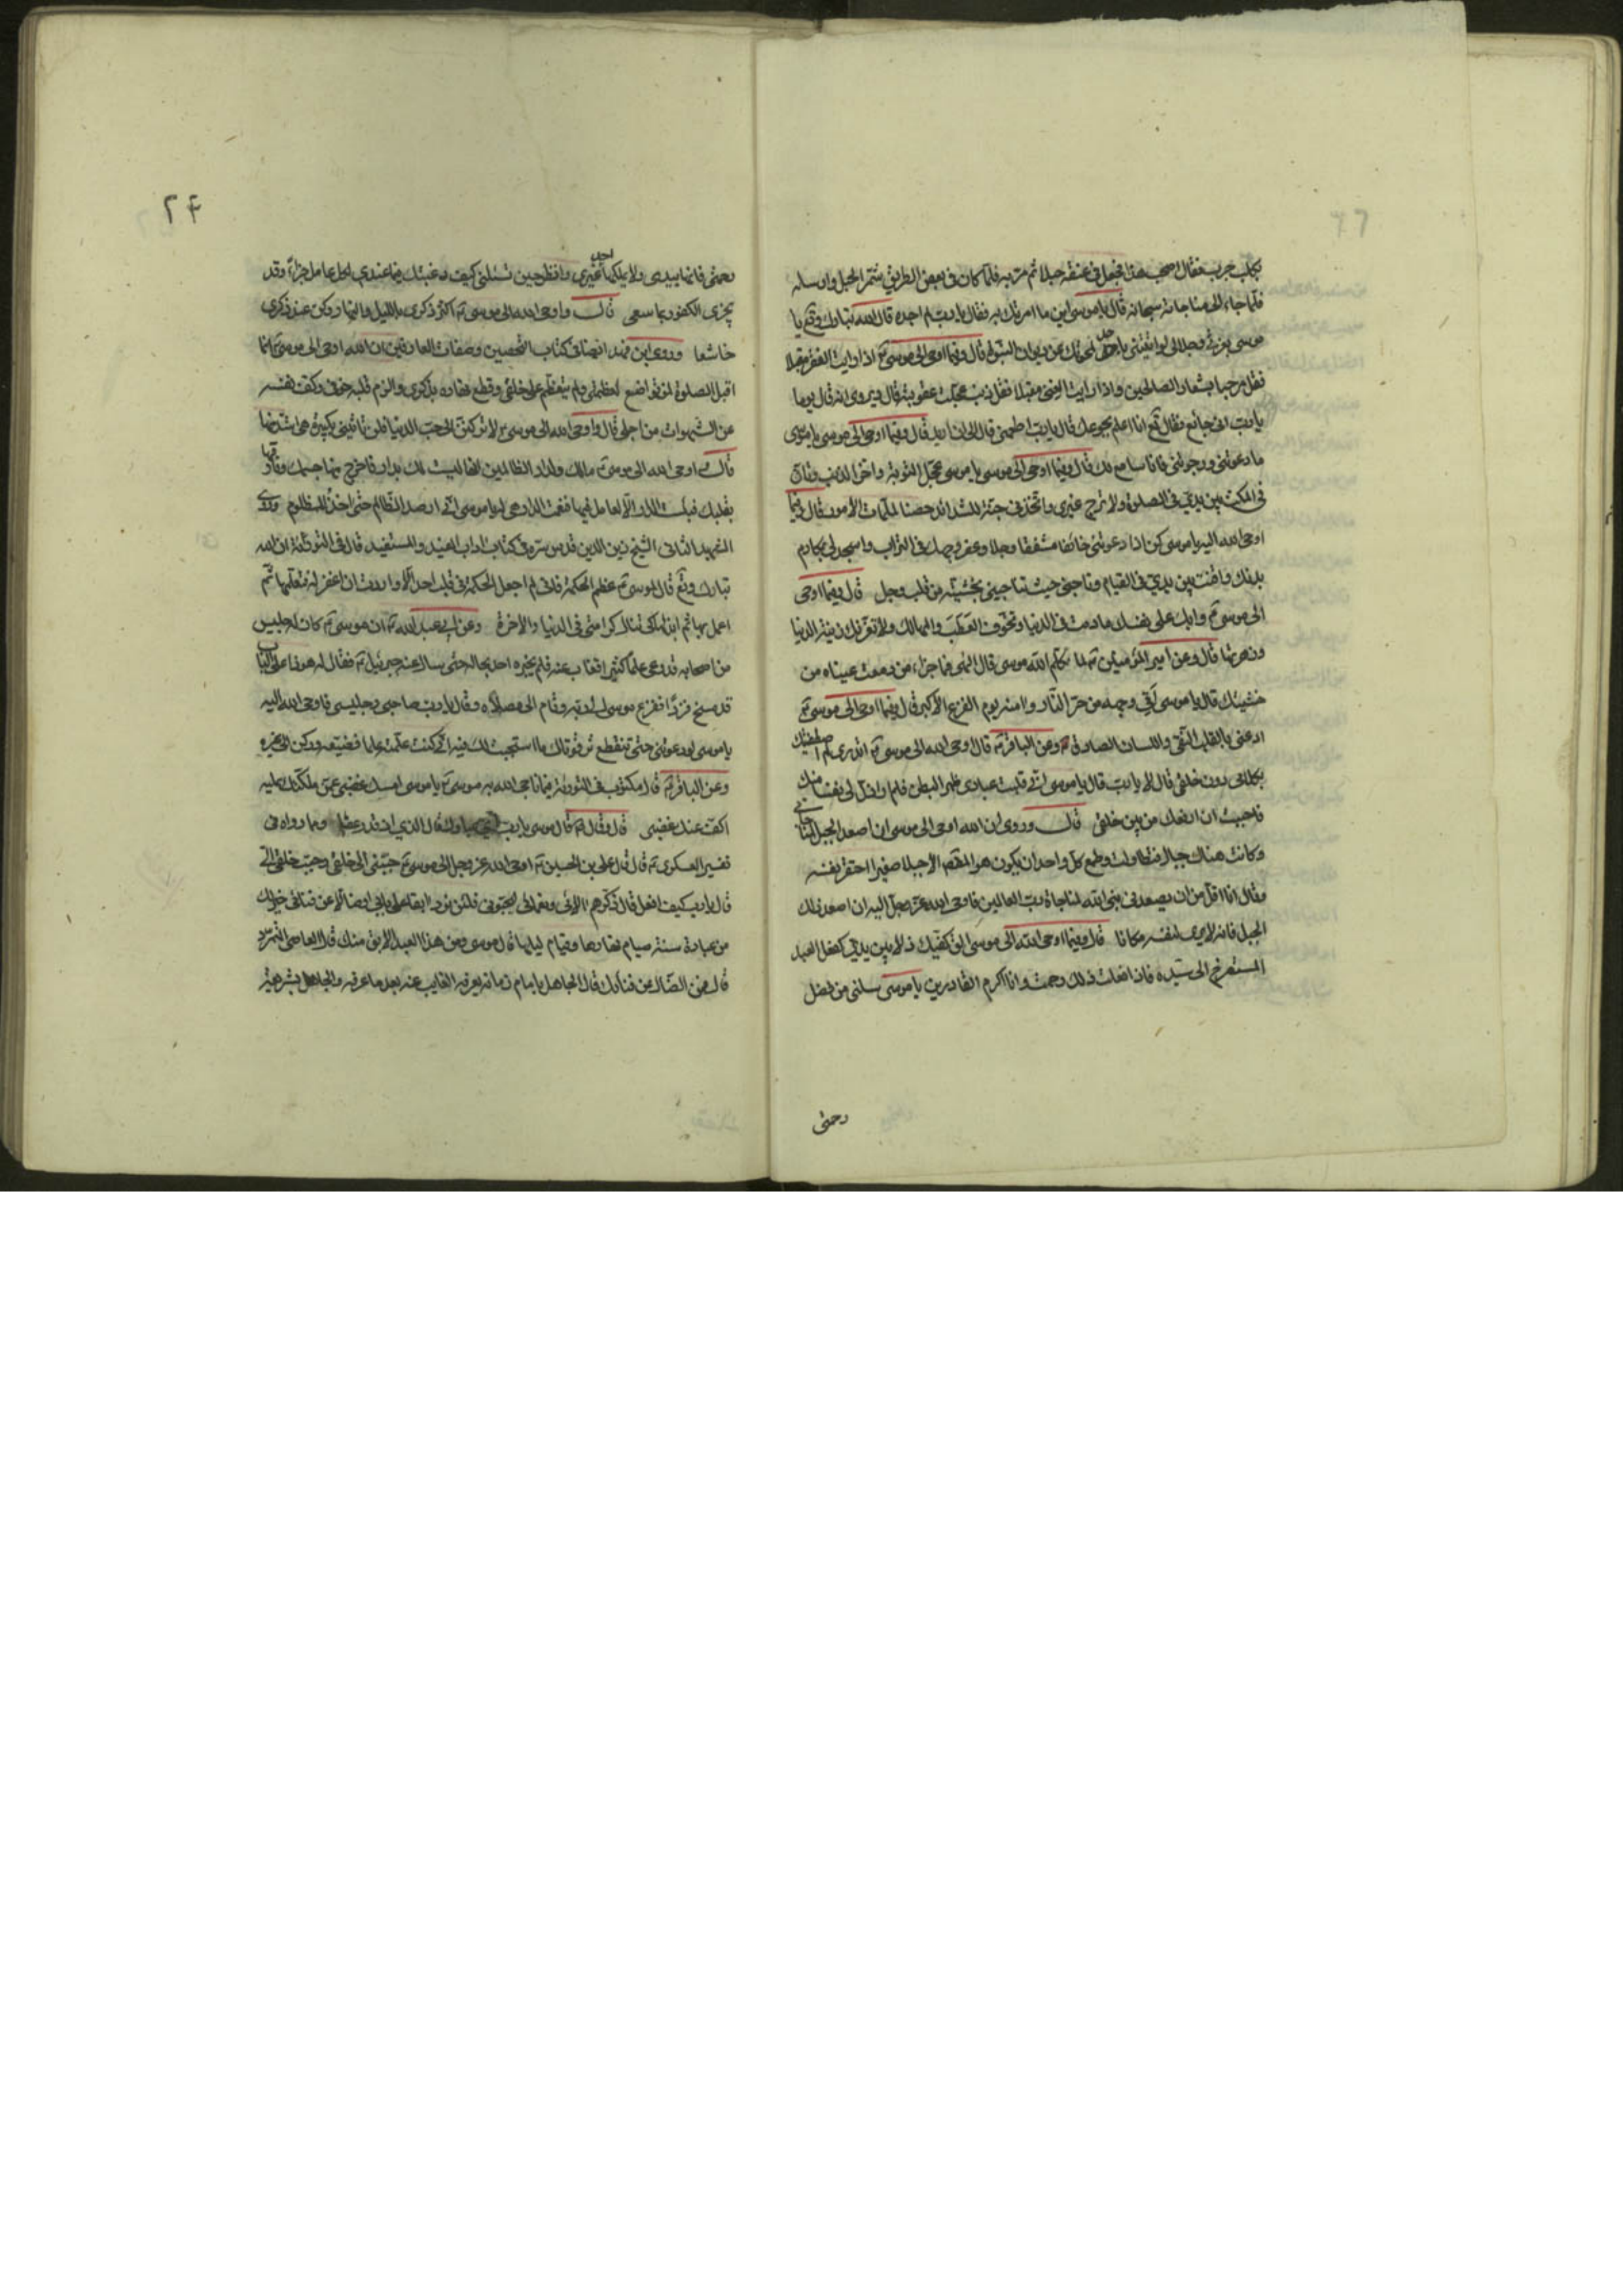 بكلب جرب فقال اصحب هذا فجعل في عنقه حبلا ثم مر به فلما كان في بعض الطريق شمر الحبل وارسله
فلما جاء الى مناجاته سبحانه قال يا موسى اين ما امرتك به فقال يا رب لم اجده قال الله تبارك وتع يا
موسى بعزتي وجلالي لو اتيتني باحد لمحوتك عن ديوان النبوة قال وفيما اوحى الى موسى ع اذا رايت الفقر مقبلا
فقل مرحبا بشعار الصالحين واذا رايت الغنى مقبلا فقل ذنب عجلت عقوبته قال ويروى انه قال يوما
يا رب انى جائع فقال تع انا اعلم بجوعك قال يا رب اطعمني قال الى ان اريد قال وفيما اوحى الى موسى يا موسى
ما دعوتني ورجوتني فانا سامع لك قال وفيما اوحى الى موسى يا موسى عجل التوبة واخر الذنب وتأن
في المكث بين يدي في الصلوة ولا ترج غيري واتخذني جنة للشدائد حصنا لملمات الامور قال وفيما
اوحى الله اليه يا موسى كن اذا دعوتني خائفا مشفقا وجلا وعفر وجهك في التراب واسجد لي بمكارم
بدنك واقنت بين يدي في القيام وناجني حيث تناجيني بخشية من قلب وجل قال وفيما اوحى
الى موسى ع وابك على نفسك ما دمت في الدنيا وتخوف العطب والمهالك ولا تغرنك زينة الدنيا
وزهرتها قال وعن امير المؤمنين ع لما كلم الله موسى قال الهى فما جزاء من دمعت عيناه من
خشيتك قال يا موسى اقى وجهه من حر النار واامنه يوم الفزع الاكبر قال وفيما اوحى الى موسى ع
ادعني بالقلب النقي واللسان الصادق وعن الباقر ع قال اوحى الله الى موسى ع اتدري لم اصطفيتك
بكلامي دون خلقي قال لا يا رب قال يا موسى اني قلبت عبادي ظهرا لبطن فلم ار اذل لي نفسا منك
فاحببت ان ارفعك من بين خلقي قال وروى ان الله اوحى الى موسى ان اصعد الجبل لمناجاتي
وكانت هناك جبال فتطاولت وطمع كل واحد ان يكون هو المقصد الا جبلا صغيرا احتقر نفسه
وقال انا اقل من ان يصعدني نبي الله لمناجاة رب العالمين فاوحى الله عز وجل اليه ان اصعد ذلك
الجبل فانه لا يرى لنفسه مكانا قال وفيما اوحى الله الى موسى الق كفيك ذلا بين يدي كفعل العبد
المستصرخ الى سيده فاذا فعلت ذلك رحمت وانا اكرم القادرين يا موسى سلني من فضل
رحمتي
۲۴
رحمتي فانها بيدي ولا يملكها احد غيري وانظر حين تسئلني كيف رغبتك فيما عندي لكل عامل جزاء وقد
يجزى الكفور بما سعى قال واوحى الله الى موسى ع اكثر ذكري بالليل والنهار وكن عند ذكري
خاشعا وروى ابن فهد ايضا في كتاب التحصين وصفات العارفين ان الله اوحى الى موسى ع انما
اقبل الصلوة لمن تواضع لعظمتي ولم يتعظم على خلقي وقطع نهاره بذكري والزم قلبه خوفي وكف نفسه
عن الشهوات من اجلي قال واوحى الله الى موسى ع لا تركنن الى حب الدنيا فلن تاتيني بكبيرة هي اشد منها
قال اوحى الله الى موسى ع مالك ولدار الظالمين انها ليست لك بدار فاخرج منها همك وفارقها
بقلبك فبئست الدار الا لعامل فيها فنعمت الدار هي له يا موسى اني ارصد الظالم حتى اخذ للمظلوم وروى
الشهيد الثاني الشيخ زين الدين قدس سره في كتاب اداب المفيد والمستفيد قال في التورية ان الله
تبارك وتع قال لموسى ع عظم الحكمة فاني لم اجعل الحكمة في قلب احد الا واردت ان اغفر له فتعلمها ثم
اعمل بها ثم ابذلها كي تنال كرامتي في الدنيا والاخرة وعن ابي عبد الله ع ان موسى ع كان له جليس
من اصحابه قد وعى علما كثيرا فغاب عنه فلم يخبره احد بحاله حتى سال عنه جبرئيل ع فقال له هو ذا على الباب
قد مسخ قردا ففزع موسى الى ربه وقام الى مصلاه وقال يا رب صاحبي وجليسي فاوحى الله اليه
يا موسى لو دعوتني حتى تنقطع ترقوتاك ما استجبت لك فيه اني كنت علمته علما فضيعه وركن الى غيره
وعن الباقر ع قال مكتوب في التورية فيما ناجى الله به موسى ع يا موسى امسك غضبك عمن ملكتك عليه
اكف عنك غضبي قال وقال ع قال موسى يا رب قال الذي اذ قدر عفا وما رواه في
تفسير العسكري ع قال قال علي بن الحسين ع اوحى الله عز وجل الى موسى ع حببني الى خلقي وحبب خلقي الي
قال يا رب كيف افعل قال ذكرهم الائي ونعمائي ليحبوني فلئن ترد ابقا عن بابي او ضالا عن فنائي خير لك
من عبادة سنة صيام نهارها وقيام ليلها قال موسى ومن هذا العبد الابق منك قال العاصي المتمرد
قال فمن الضال عن فنائك قال الجاهل بامام زمانه يعرفه الغايب عنه بعد ما عرفه والجاهل بشريعة